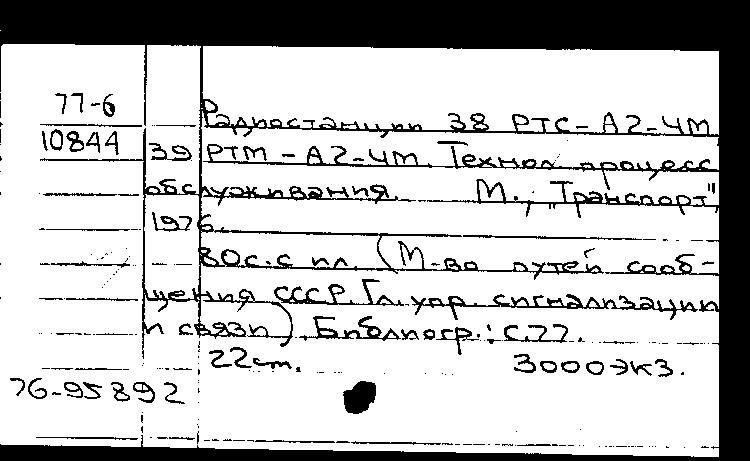 77-6
10844
Радиостанции 38 РТС-А2-ЧМ,
39 РТМ-А2-ЧМ. Технол. процесс
обслуживания. М., "Транспорт",
1976.
80с. с ил. (М-во путей сооб-
щения СССР. Гл. упр. сигнализации
и связи). Библиогр.: с. 77.
22см. 3000экз.
76-95892